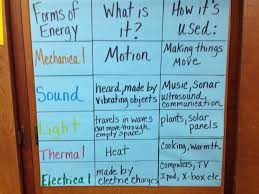 Forms of Energy
What is it?
How it's used:
Mechanical
Motion
Making things move
Sound
heard, made by vibrating objects
Music, Sonar ultrasound, communication
Light
travels in waves can move through empty space
plants, solar panels
Thermal
Heat
Cooking, warmth
Electrical
made by electric charges
computers, TV Ipod, X-box etc.